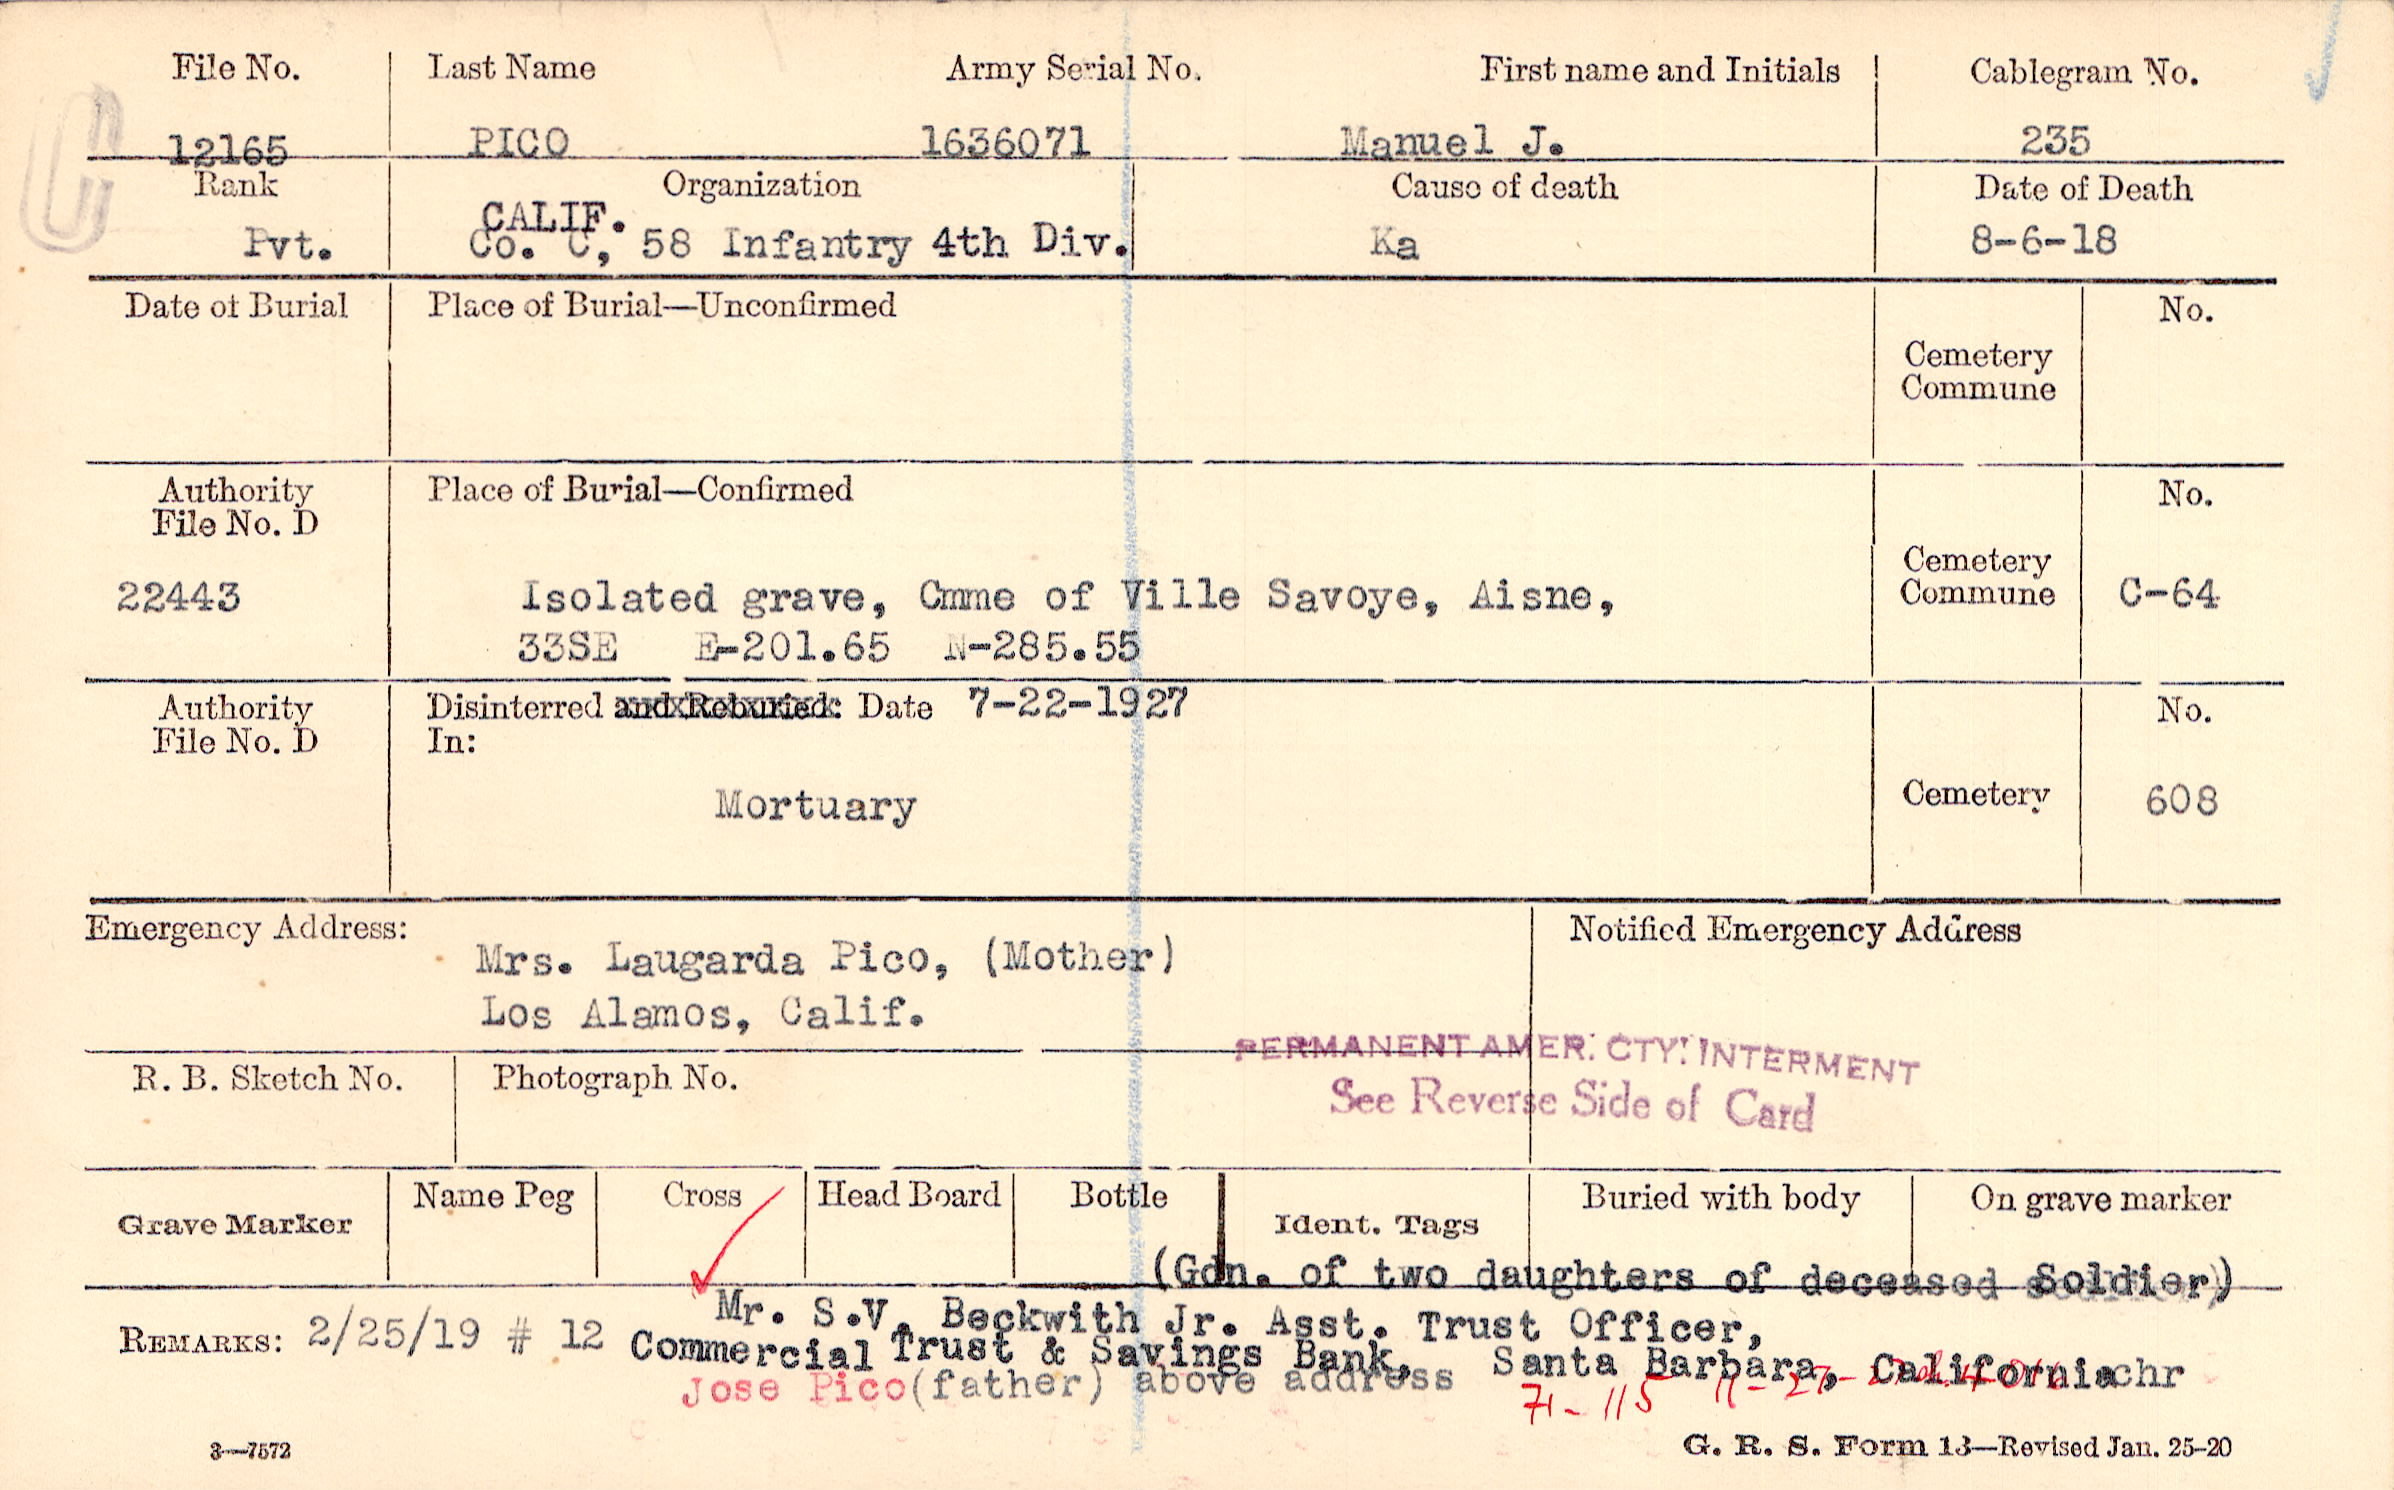 File No. Last Name Army Serial No. First name and Initials Cablegram No.
12165 PICO 1636071 Manuel J. 235
Rank Organization Cause of death Date of Death
CALIF.
Pvt. Co. C, 58 Infantry 4th Div. Ka 8-6-18
Date of Burial Place of Burial—Unconfirmed No.
Cemetery
Commune
Authority Place of Burial—Confirmed No.
File No. D
Cemetery
22443 Isolated grave, Cmme of Ville Savoye, Aisne, Commune C-64
33SE E-201.65 N-285.55
Authority Disinterred and Reburied: Date 7-22-1927 No.
File No. D In:
Mortuary Cemetery 608
Emergency Address: Notified Emergency Address
Mrs. Laugarda Pico, (Mother)
Los Alamos, Calif.
PERMANENT AMER. CTY. INTERMENT
R. B. Sketch No. Photograph No.
See Reverse Side of Card
Name Peg Cross Head Board Bottle Buried with body On grave marker
Grave Marker Ident. Tags
(Gdn. of two daughters of deceased Soldier)
Mr. S.V. Beckwith Jr. Asst. Trust Officer,
REMARKS: 2/25/19 # 12 Commercial Trust & Savings Bank, Santa Barbara, California chr
Jose Pico (father) above address
71-115
3—7572 G. R. S. Form 13—Revised Jan. 25-20
C